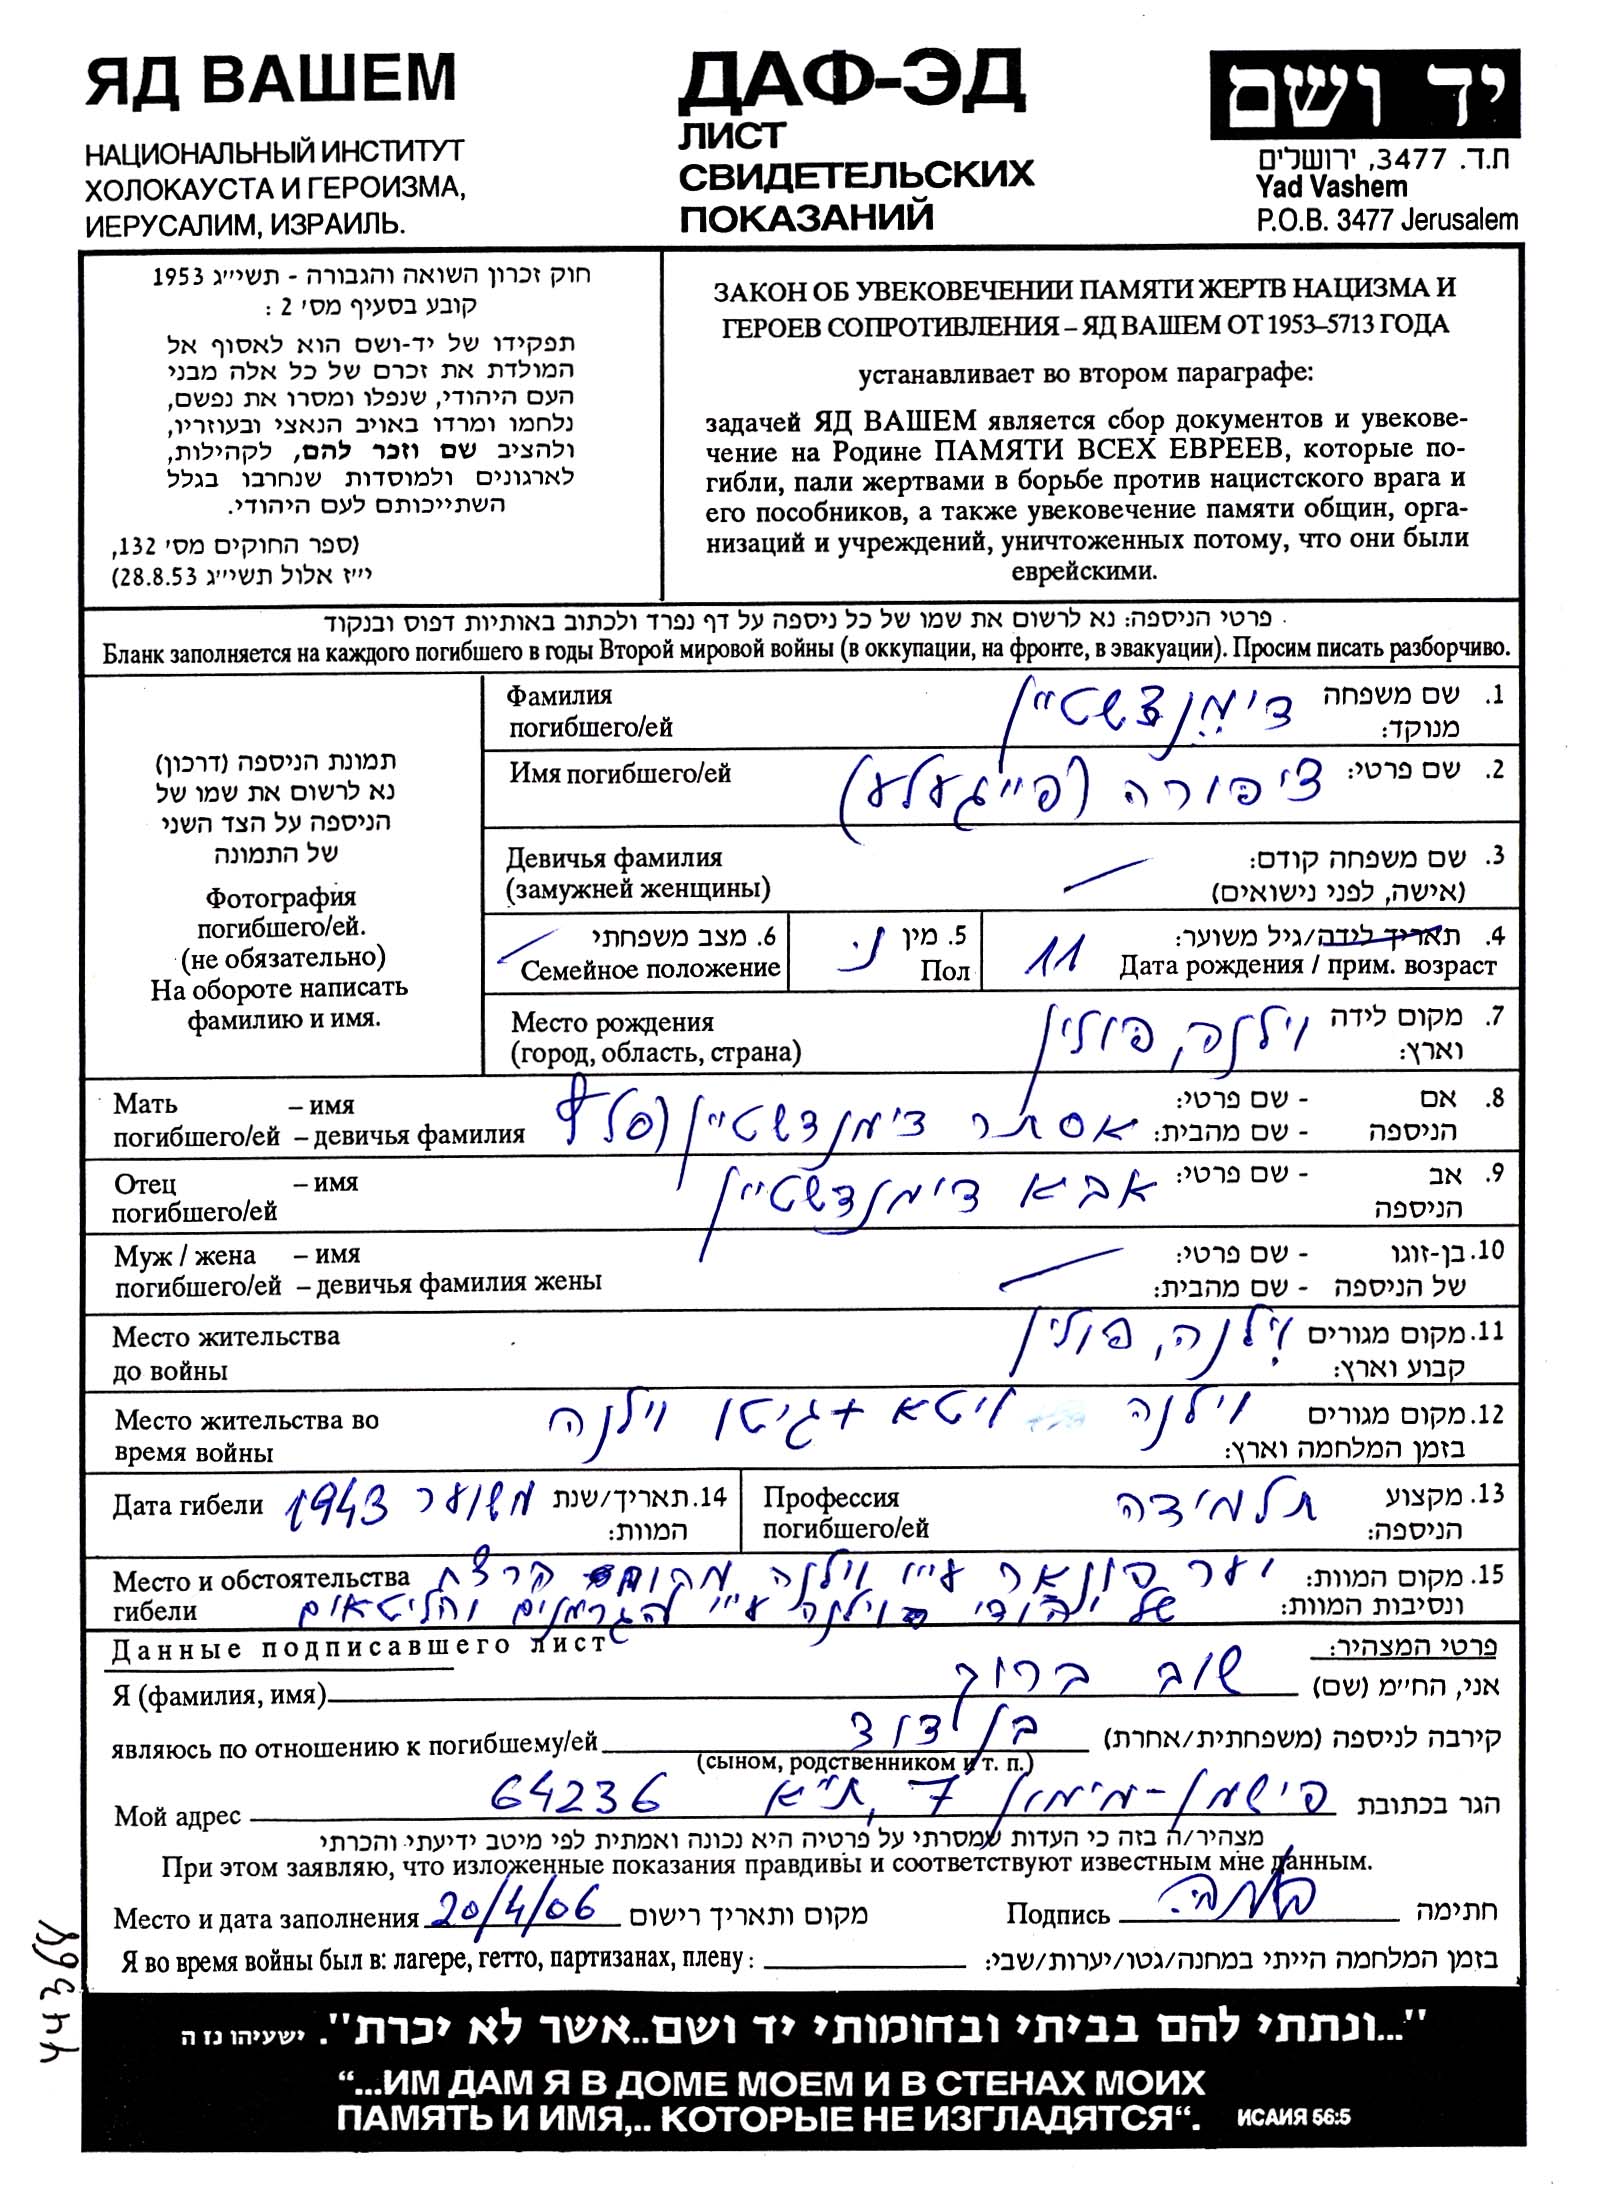 ЯД ВАШЕМ
НАЦИОНАЛЬНЫЙ ИНСТИТУТ
ХОЛОКАУСТА И ГЕРОИЗМА,
ИЕРУСАЛИМ, ИЗРАИЛЬ.
ДАФ-ЭД
ЛИСТ
СВИДЕТЕЛЬСКИХ
ПОКАЗАНИЙ
יד ושם
ת.ד. 3477, ירושלים
Yad Vashem
P.O.B. 3477 Jerusalem
חוק זכרון השואה והגבורה - תשי״ג 1953
קובע בסעיף מס׳ 2 :
תפקידו של יד-ושם הוא לאסוף אל
המולדת את זכרם של כל אלה מבני
העם היהודי, שנפלו ומסרו את נפשם,
נלחמו ומרדו באויב הנאצי ובעוזריו,
ולהציב שם וזכר להם, לקהילות,
לארגונים ולמוסדות שנחרבו בגלל
השתייכותם לעם היהודי.
(ספר החוקים מס׳ 132,
י״ז אלול תשי״ג 28.8.53)
ЗАКОН ОБ УВЕКОВЕЧЕНИИ ПАМЯТИ ЖЕРТВ НАЦИЗМА И
ГЕРОЕВ СОПРОТИВЛЕНИЯ – ЯД ВАШЕМ ОТ 1953–5713 ГОДА
устанавливает во втором параграфе:
задачей ЯД ВАШЕМ является сбор документов и увекове-
чение на Родине ПАМЯТИ ВСЕХ ЕВРЕЕВ, которые по-
гибли, пали жертвами в борьбе против нацистского врага и
его пособников, а также увековечение памяти общин, орга-
низаций и учреждений, уничтоженных потому, что они были
еврейскими.
פרטי הניספה: נא לרשום את שמו של כל ניספה על דף נפרד ולכתוב באותיות דפוס ובנקוד
Бланк заполняется на каждого погибшего в годы Второй мировой войны (в оккупации, на фронте, в эвакуации). Просим писать разборчиво.
תמונת הניספה (דרכון)
נא לרשום את שמו של
הניספה על הצד השני
של התמונה
Фотография
погибшего/ей.
(не обязательно)
На обороте написать
фамилию и имя.
1. שם משפחה Фамилия
מנוקד: דימנדשטיין погибшего/ей
2. שם פרטי: ציפורה (פייגעלע) Имя погибшего/ей
3. שם משפחה קודם: Девичья фамилия
(אישה, לפני נישואים) (замужней женщины)
4. תאריך לידה/גיל משוער: 11
Дата рождения / прим. возраст
5. מין נ.
Пол
6. מצב משפחתי
Семейное положение
7. מקום לידה וילנה, פולין Место рождения
וארץ: (город, область, страна)
8. אם - שם פרטי: Мать – имя
הניספה - שם מהבית: אסתר דימנדשטיין погибшего/ей – девичья фамилия
9. אב - שם פרטי: אבא דימנדשטיין Отец – имя
הניספה погибшего/ей
10. בן-זוגו - שם פרטי: Муж / жена – имя
של הניספה - שם מהבית: погибшего/ей – девичья фамилия жены
11. מקום מגורים וילנה, פולין Место жительства
קבוע וארץ: до войны
12. מקום מגורים וילנה ליטא + גיטו וילנה Место жительства во
בזמן המלחמה וארץ: время войны
13. מקצוע תלמידה Профессия
הניספה: погибшего/ей
14. תאריך/שנת משוער 1943 Дата гибели
המוות:
15. מקום המוות: יער פונאר ע״י וילנה מקום הרצח Место и обстоятельства
ונסיבות המוות: של יהודי וילנה ע״י הגרמנים והליטאים гибели
פרטי המצהיר: Данные подписавшего лист
אני, הח״מ (שם) שוב ברוך Я (фамилия, имя)
קירבה לניספה (משפחתית/אחרת) בן דוד являюсь по отношению к погибшему/ей
(сыном, родственником и т. п.)
הגר בכתובת פישמן-מימון 7, ת״א 64236 Мой адрес
מצהיר/ה בזה כי העדות שמסרתי על פרטיה היא נכונה ואמתית לפי מיטב ידיעתי והכרתי
При этом заявляю, что изложенные показания правдивы и соответствуют известным мне данным.
Место и дата заполнения 20/4/06 מקום ותאריך רישום Подпись חתימה
Я во время войны был в: лагере, гетто, партизанах, плену : בזמן המלחמה הייתי במחנה/גטו/יערות/שבי:
"...ונתתי להם בביתי ובחומותי יד ושם..אשר לא יכרת". ישעיהו נז ה
“...ИМ ДАМ Я В ДОМЕ МОЕМ И В СТЕНАХ МОИХ
ПАМЯТЬ И ИМЯ,.. КОТОРЫЕ НЕ ИЗГЛАДЯТСЯ“. ИСАИЯ 56:5